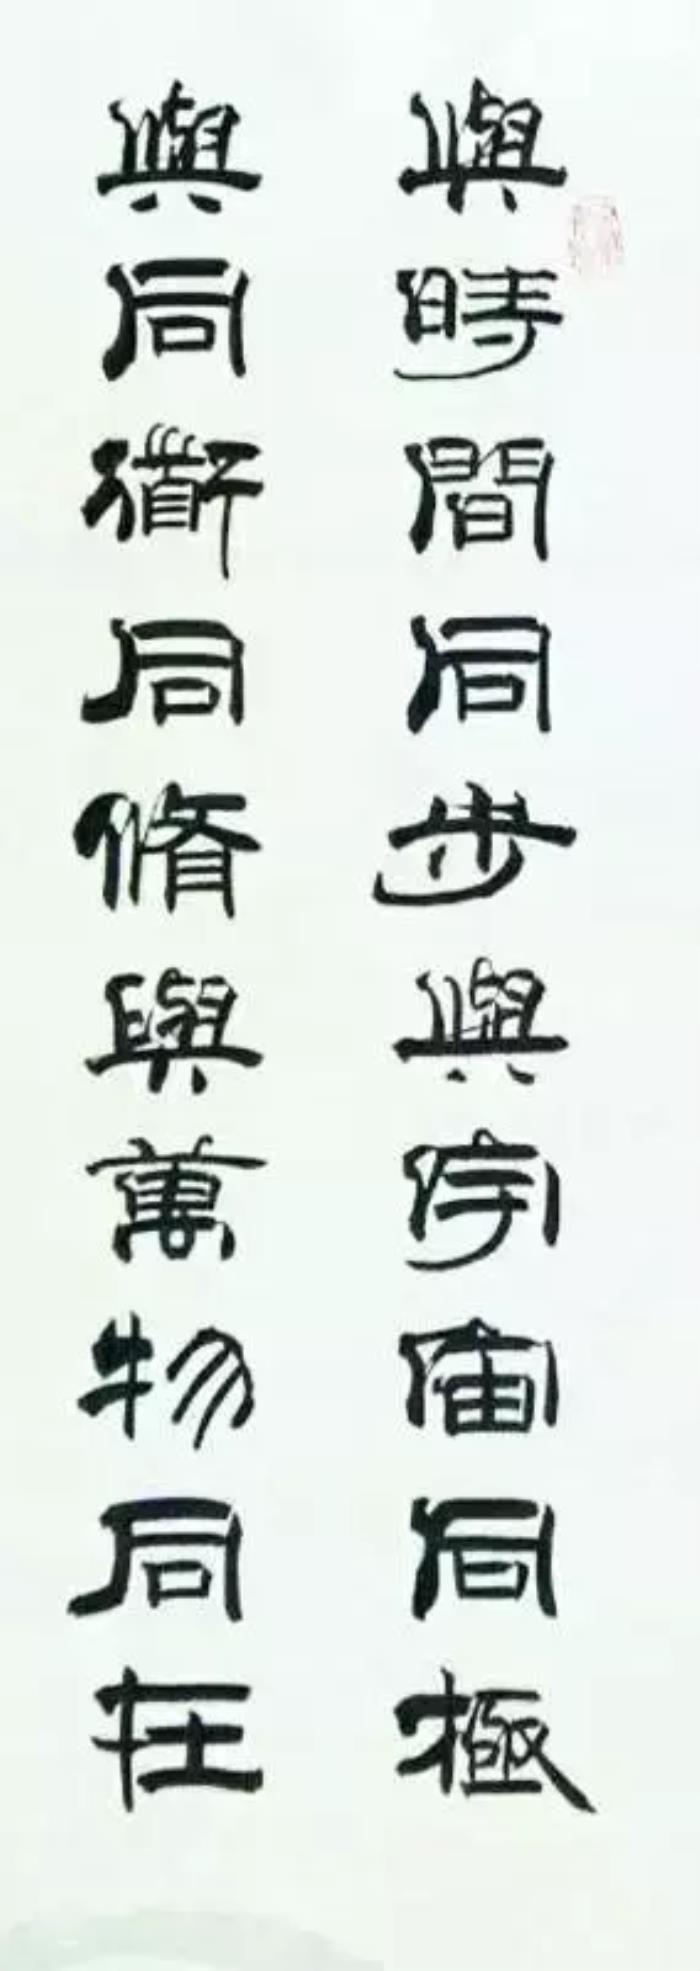 與時間同步與宇宙同極
與同衜同脩與萬物同在